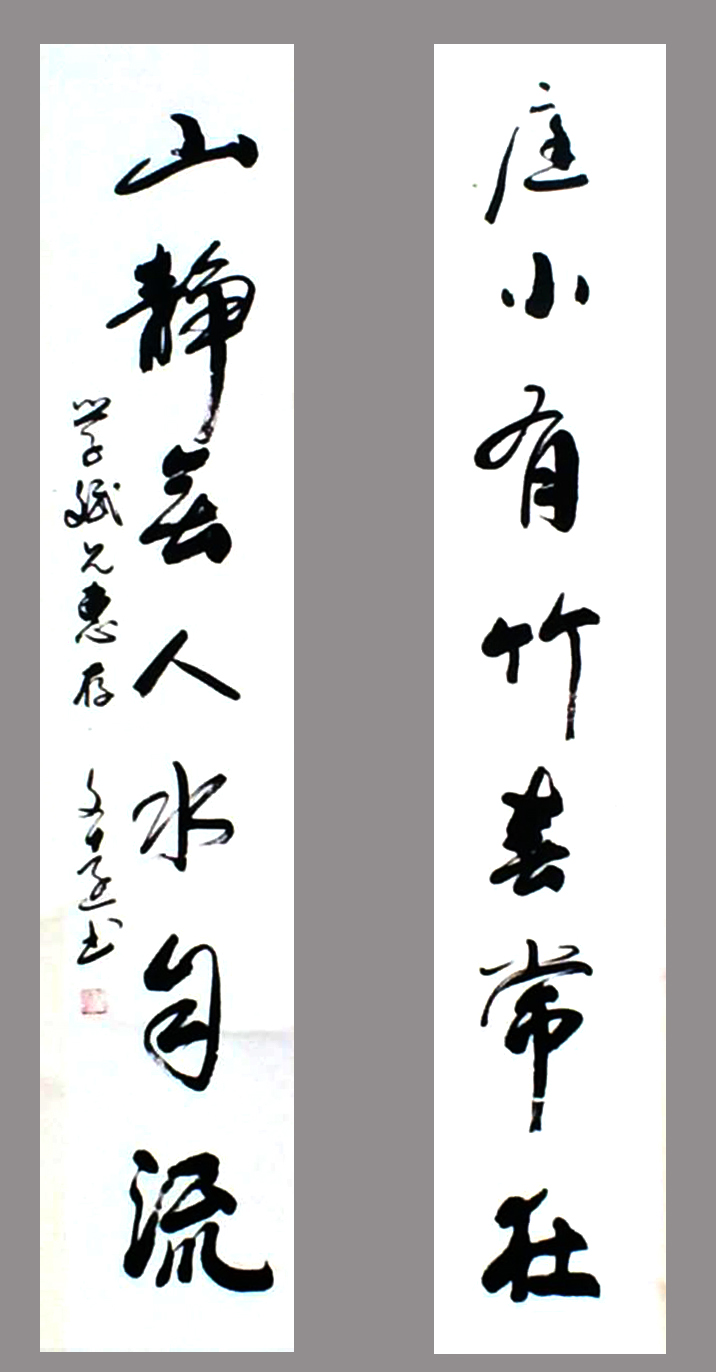 庭小有竹春常在
山静無人水自流
学斌兄惠存
文遠书